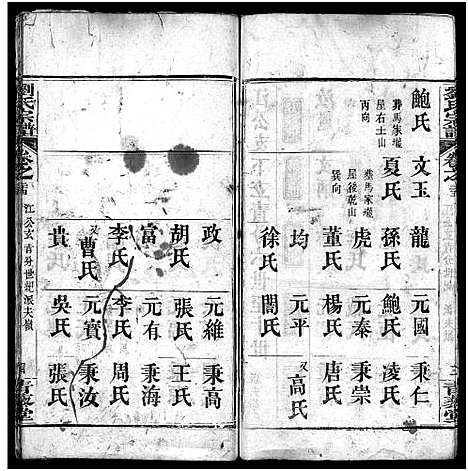 劉氏宗譜
卷之
鮑氏 文玉 龍 元國 秉仁
葬馬家壠
屋右土山
丙向
夏氏 孫氏 鮑氏 凌氏
葬馬家壠
屋後乾山
巽向
虎 元泰 秉崇
董氏 楊氏 唐氏
均 元平 又高氏
徐氏 閻氏
政 元維 秉高
胡氏 張氏 王氏
富 元有 秉海
李氏 李氏 周氏
又曹氏 元寶 秉汝
貴 吳氏 張氏
劉氏宗譜
卷之
江公玄青分世紀派夫嶺
四
青藜堂